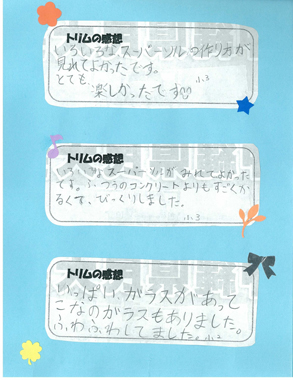 トリムの感想
いろいろなスーパーソルの作りあが
見れてよかったです。
とても
楽しかったです♡
小3
トリムの感想
いろいろなスーパーソルが みれてよかった
です。ふつうのコンクリートよりもすごくか
るくて、びっくりしました。
小3
トリムの感想
いっぱい、ガラスがあって
こなのガラスもありました。
ふわふわしてました。小3